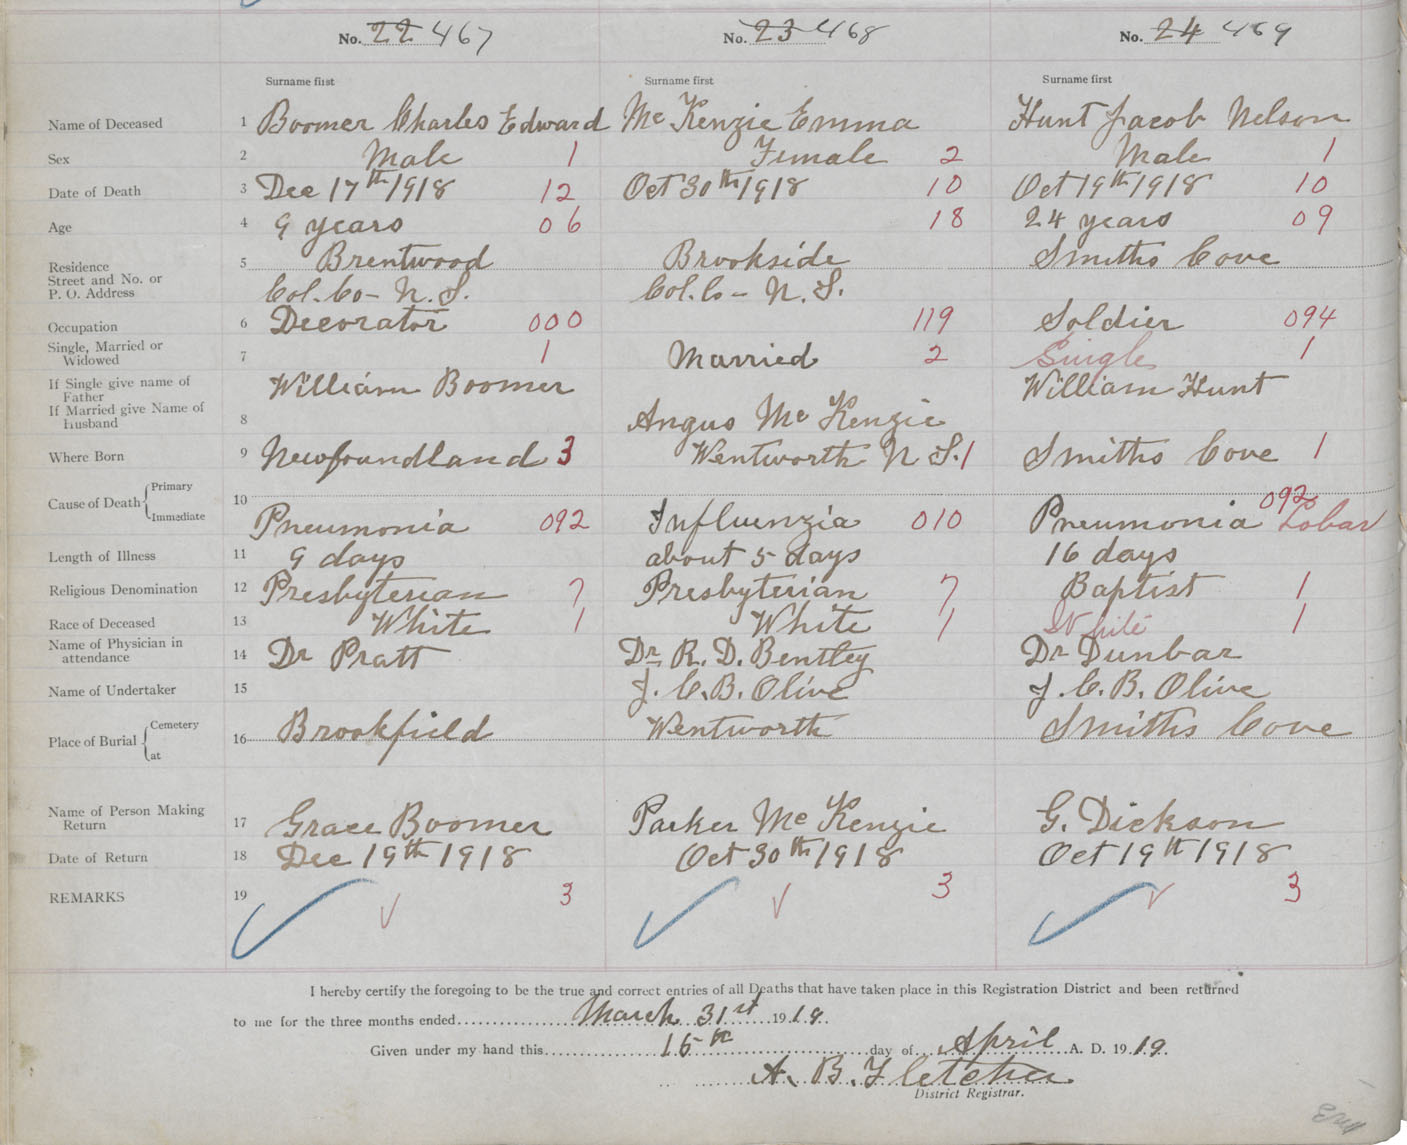 No. 22 467 No. 23 468 No. 24 469
Surname first Surname first Surname first
Name of Deceased 1 Boomer Charles Edward Mc Kenzie Emma Hunt Jacob Nelson
Sex 2 Male 1 Female 2 Male 1
Date of Death 3 Dec 17th 1918 12 Oct 30th 1918 10 Oct 19th 1918 10
Age 4 9 years 06 18 24 years 09
Residence 5 Brentwood Brookside Smiths Cove
Street and No. or
P. O. Address Col. Co- N. S. Col. Co- N. S.
Occupation 6 Decorator 000 119 Soldier 094
Single, Married or
Widowed 7 1 Married 2 Single 1
If Single give name of
Father William Boomer William Hunt
If Married give Name of
Husband 8 Angus Mc Kenzie
Where Born 9 Newfoundland 3 Wentworth N S. 1 Smiths Cove 1
Cause of Death Primary 10 092
Immediate Pneumonia 092 Influenzia 010 Pneumonia Lobar
Length of Illness 11 9 days about 5 days 16 days
Religious Denomination 12 Presbyterian 7 Presbyterian 7 Baptist 1
Race of Deceased 13 White 1 White 1 White 1
Name of Physician in
attendance 14 Dr Pratt Dr R. D. Bentley Dr Dunbar
Name of Undertaker 15 J. C. B. Olive J. C. B. Olive
Place of Burial Cemetery 16 Brookfield Wentworth Smiths Cove
at
Name of Person Making
Return 17 Grace Boomer Parker Mc Kenzie G. Dickson
Date of Return 18 Dec 19th 1918 Oct 30th 1918 Oct 19th 1918
REMARKS 19 3 3 3
I hereby certify the foregoing to be the true and correct entries of all Deaths that have taken place in this Registration District and been returned
to me for the three months ended March 31st 19 19.
Given under my hand this 15th day of April A. D. 19 19.
A. B. Fletcher
District Registrar.